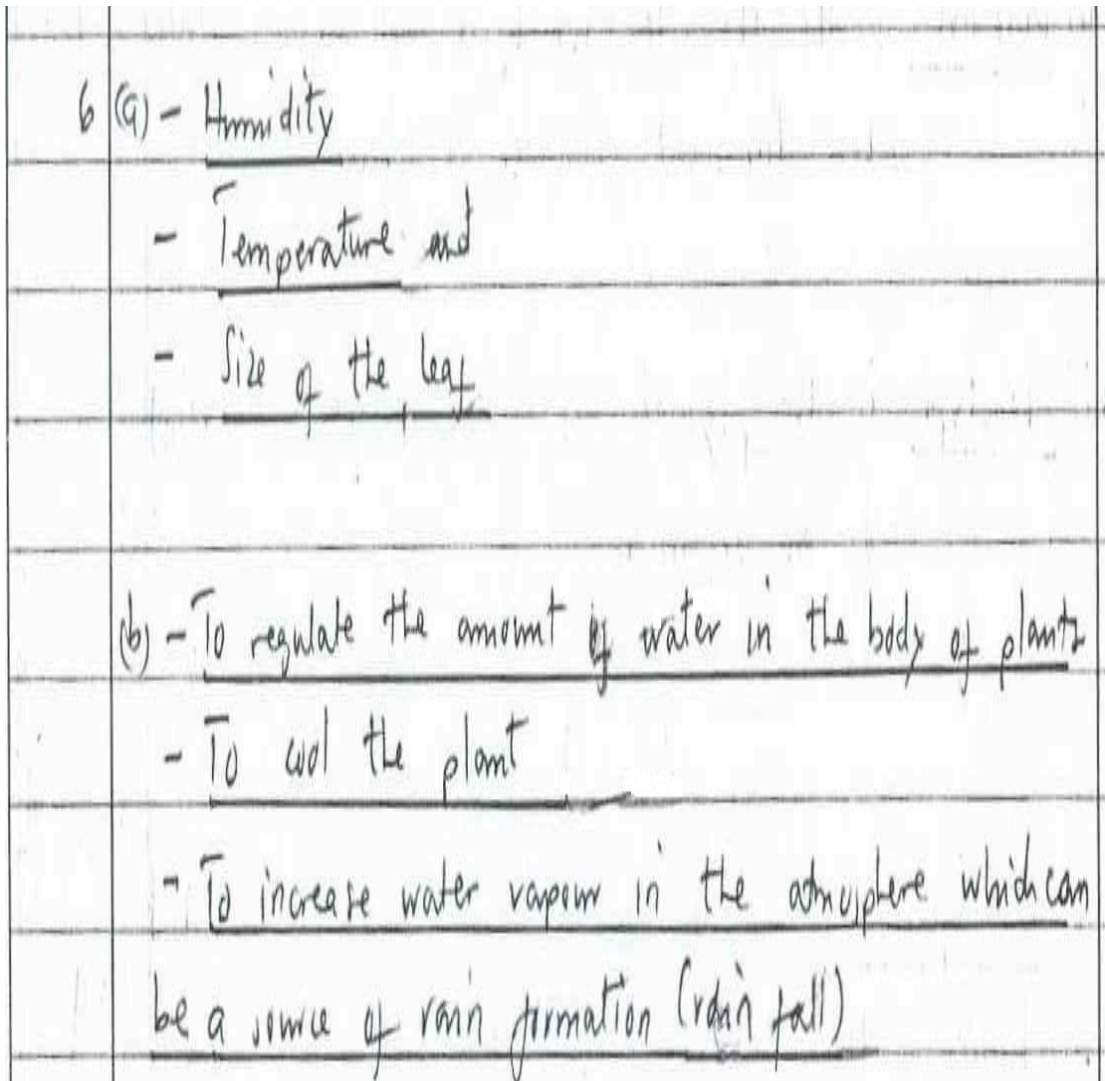 6 (a) - Humidity
- Temperature and
- Size of the leaf
(b) - To regulate the amount of water in the body of plants
- To cool the plant
- To increase water vapour in the atmosphere which can
be a source of rain formation (rain fall)